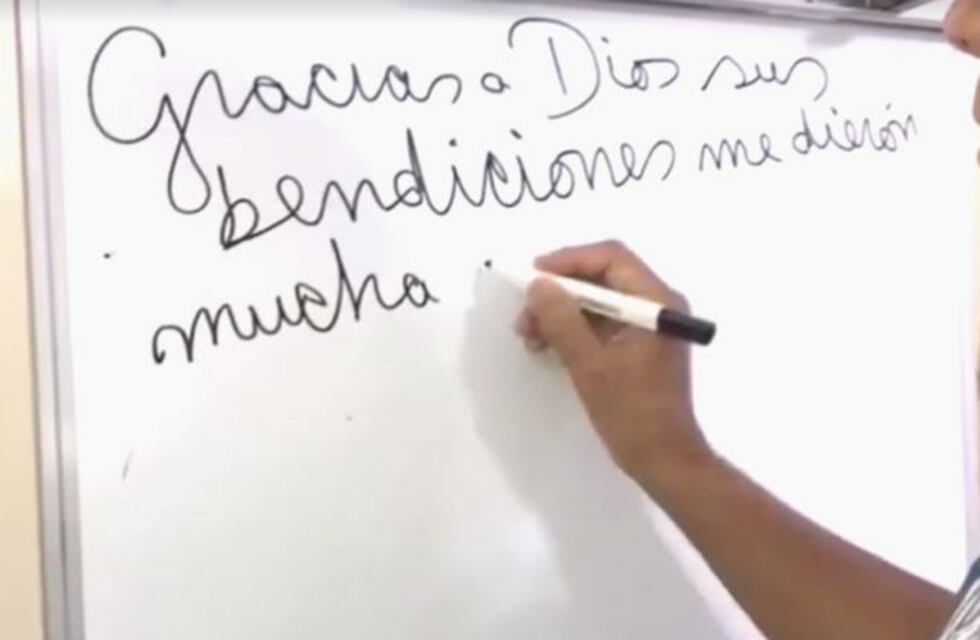 Gracias a Dios sus
bendiciones me dierón
mucha